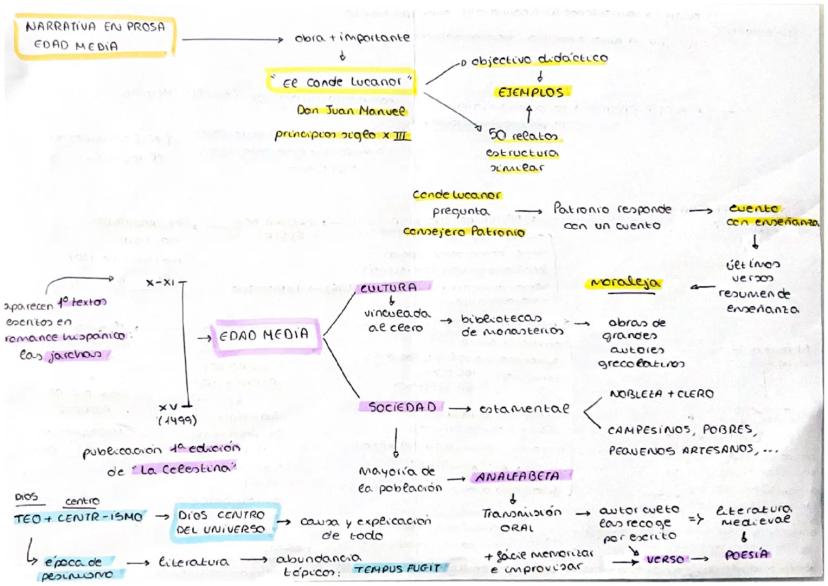 NARRATIVA EN PROSA
EDAD MEDIA
obra + importante
"El Conde Lucanor"
Don Juan Manuel
principios siglo XIII
objectivo didáctico
EJEMPLOS
50 relatos
estructura
similar
Conde Lucanor
pregunta
consejero Patronio
Patronio responde
con un cuento
cuento
con enseñanza
últimos
versos
resumen de
enseñanta
moraleja
X-XI
aparecen 1º textos
escritos en
romance hispánico:
las jarchas
XV
(1499)
publicación 1ª edición
de "La Celestina"
EDAD MEDIA
CULTURA
vinculada
al clero
bibliotecas
de monasterios
obras de
grandes
autores
grecolatinos
SOCIEDAD
estamental
NOBLEZA + CLERO
CAMPESINOS, POBRES,
PEQUENOS ARTESANOS, ...
mayoría de
la población
ANALFABETA
Transmisión
ORAL
autor culto
las recoge
por escrito
=> literatura
medieval
+ fácil memorizar
e improvisar
VERSO
POESÍA
DIOS centro
TEO + CENTR-ISMO
DIOS CENTRO
DEL UNIVERSO
causa y explicación
de todo
época de
pesimismo
literatura
abundancia
tópicos: TEMPUS FUGIT